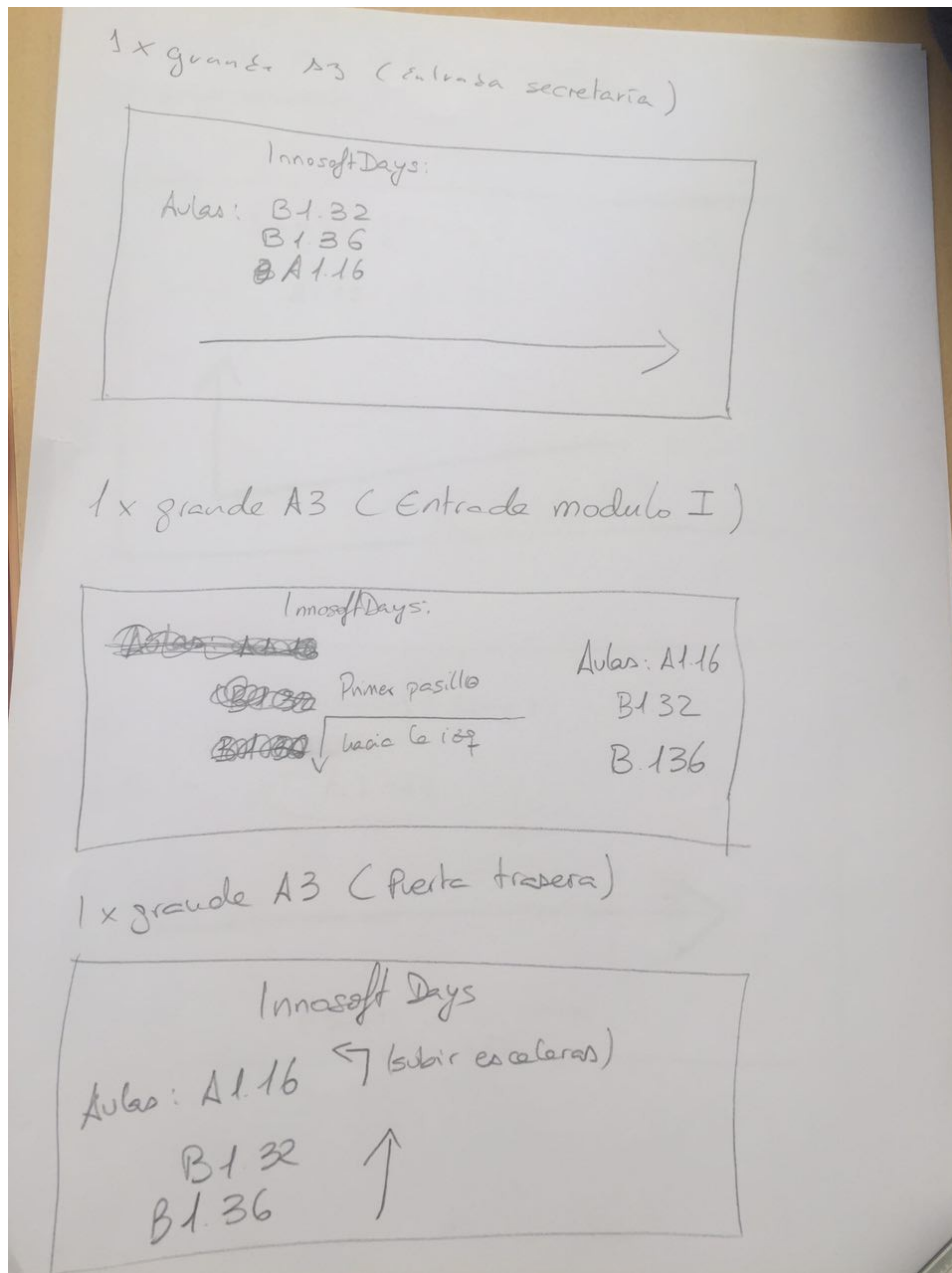 1 x grande A3 (Entrada secretaría)
InnosoftDays:
Aulas: B1.32
B1.36
A1.16
1 x grande A3 (Entrada modulo I)
InnosoftDays:
Primer pasillo
hacia la izq
Aulas: A1.16
B1 32
B.136
1 x grande A3 (Puerta trasera)
Innosoft Days
Aulas: A1.16 (subir escaleras)
B1.32
B1.36